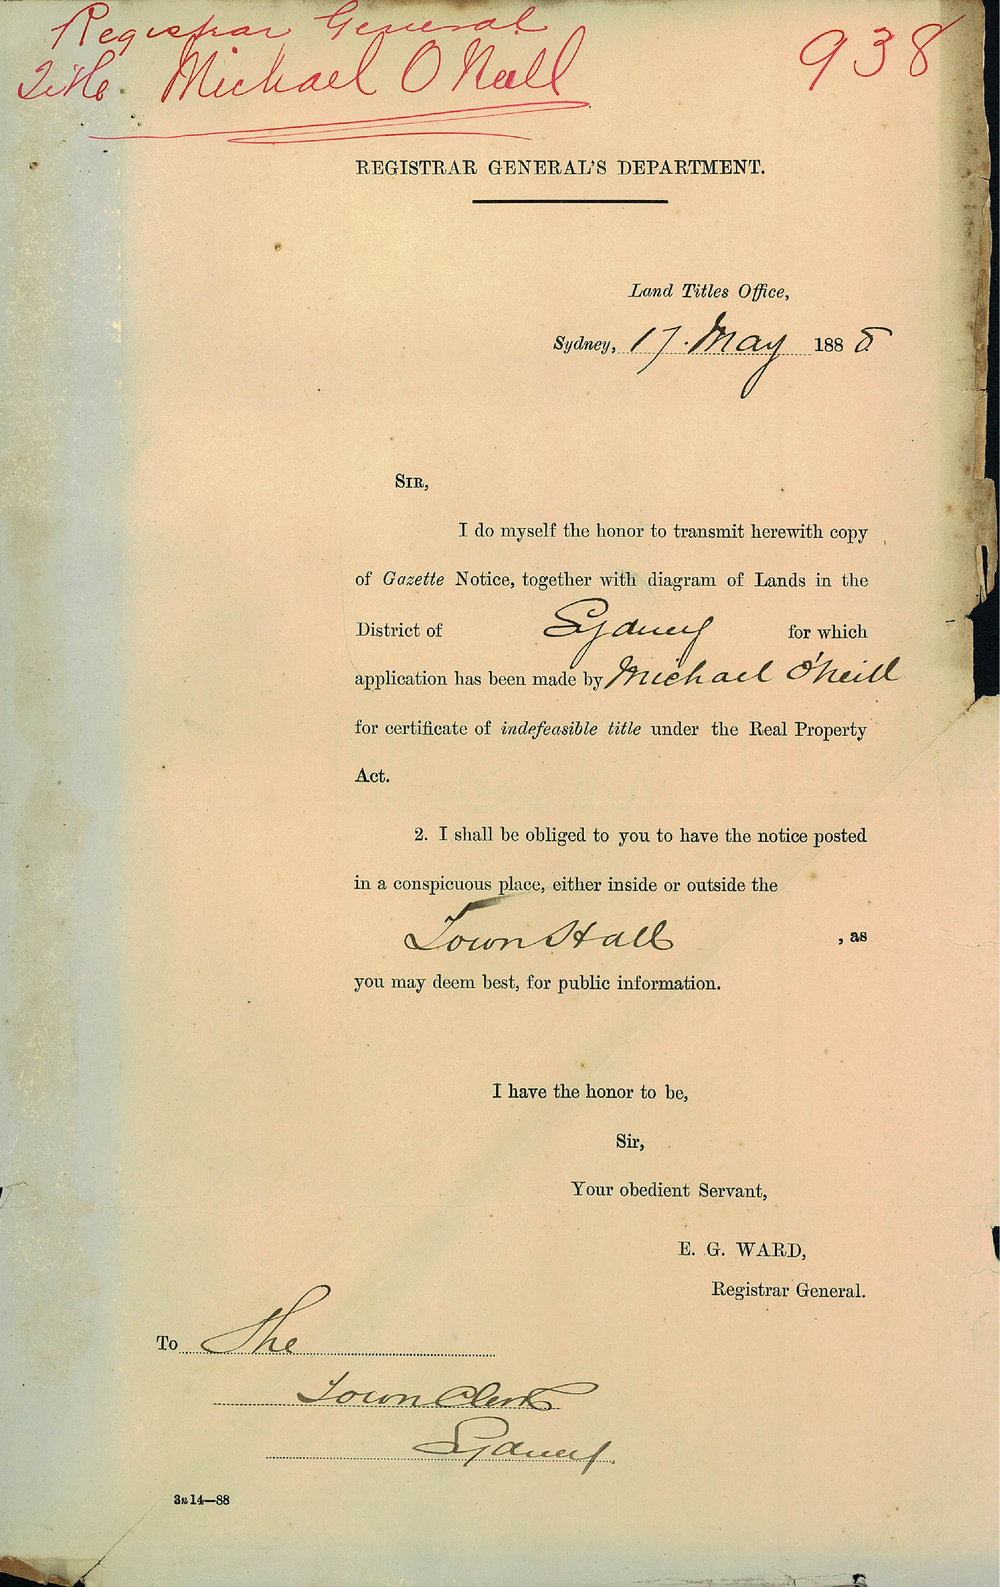 Registrar General
938
Title. Michael O'Neill
REGISTRAR GENERAL'S DEPARTMENT.
Land Titles Office,
Sydney, 17. May 1888
SIR,
I do myself the honor to transmit herewith copy
of Gazette Notice, together with diagram of Lands in the
District of Sydney for which
application has been made by Michael O'Neill
for certificate of indefeasible title under the Real Property
Act.
2. I shall be obliged to you to have the notice posted
in a conspicuous place, either inside or outside the
Town Hall , as
you may deem best, for public information.
I have the honor to be,
Sir,
Your obedient Servant,
E. G. WARD,
Registrar General.
To The
Town Clerk
Sydney.
3n14—88